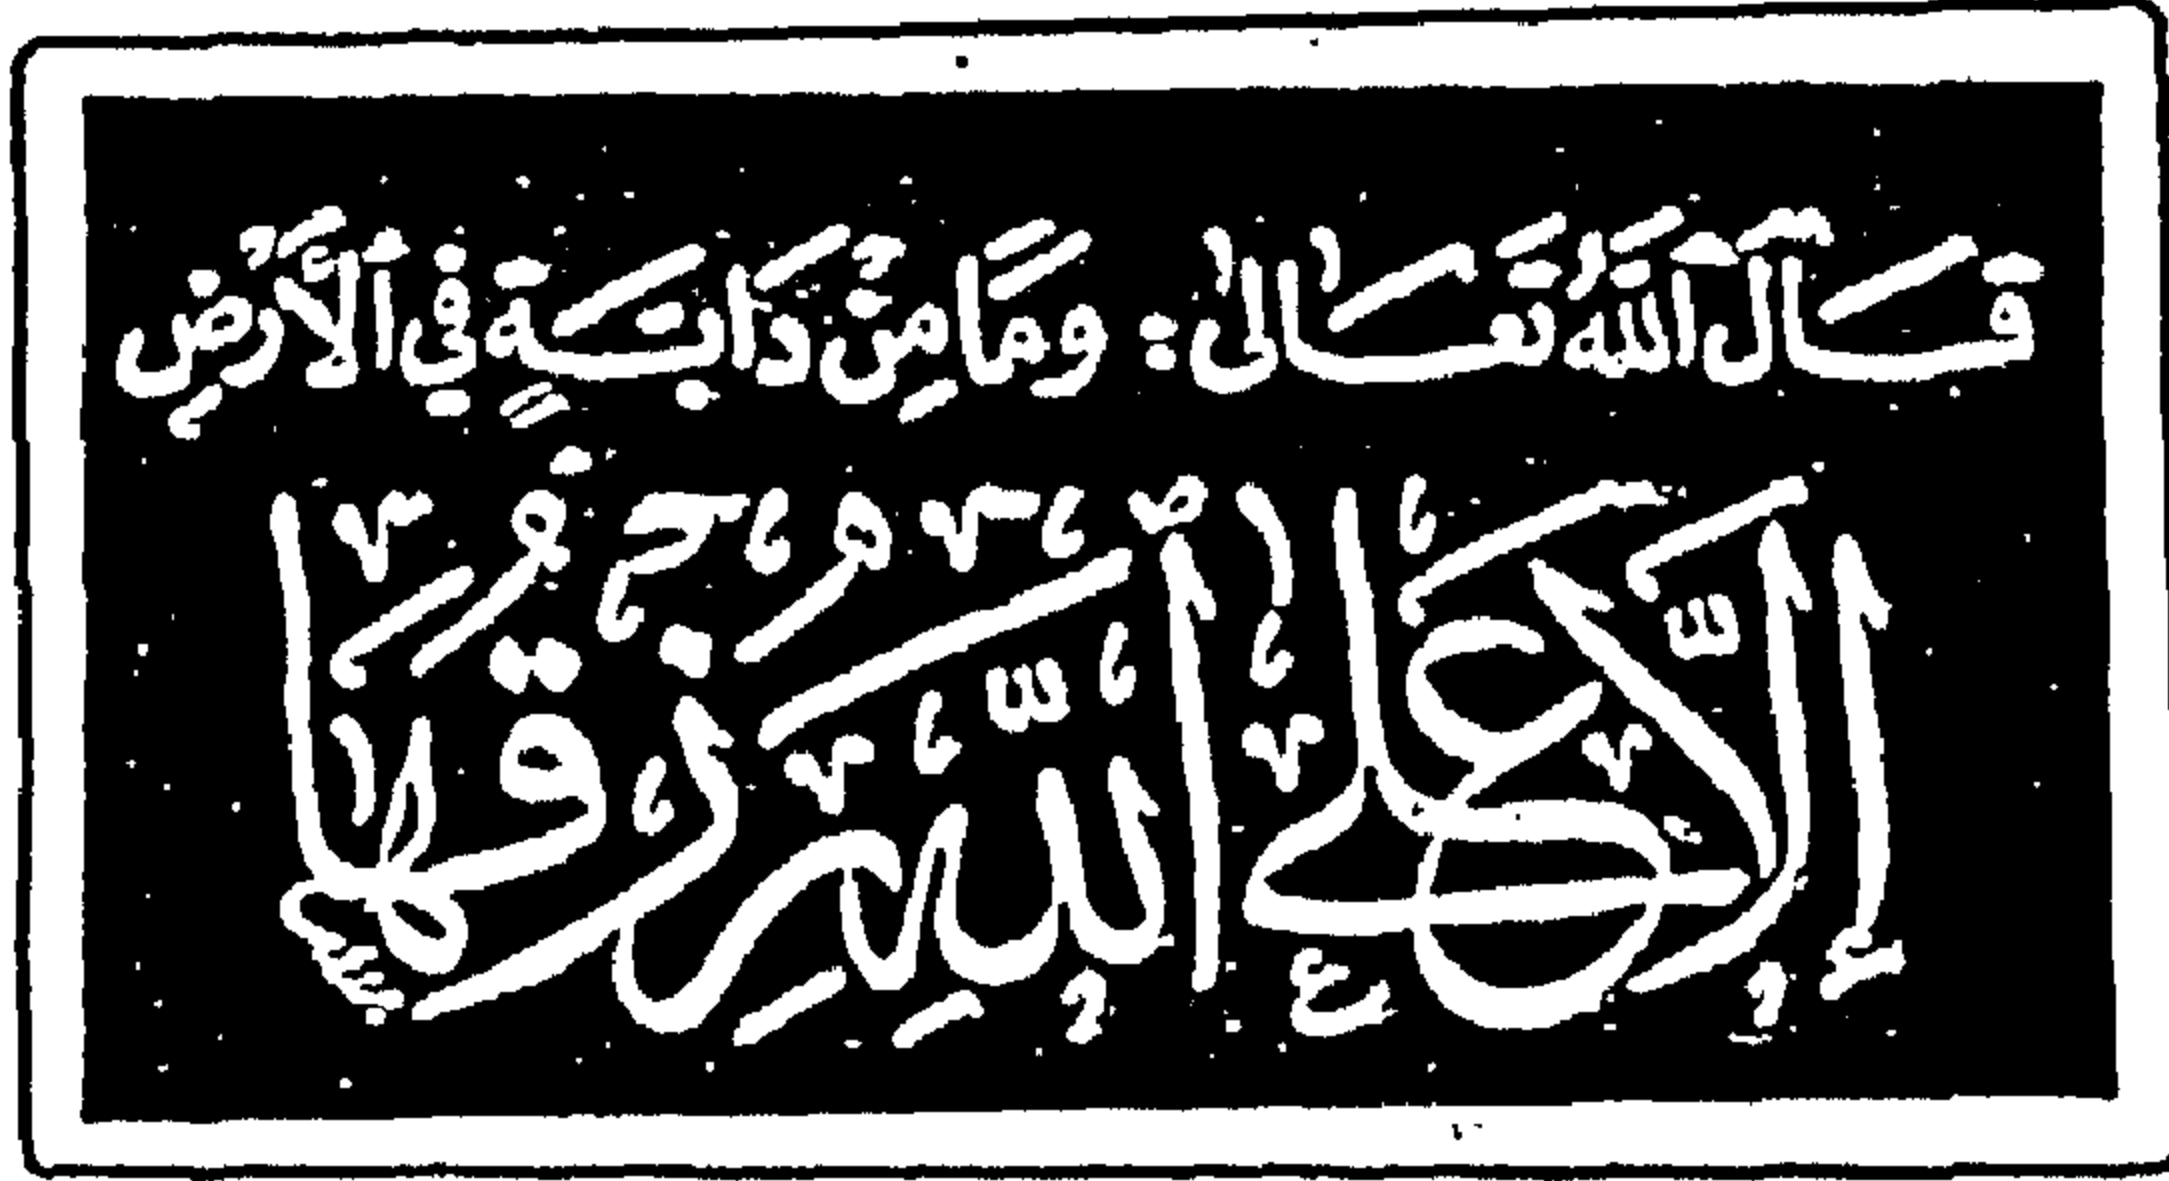 قَالَ اللهُ تَعَالَىٰ : وَمَا مِنْ دَابَّةٍ فِي الْأَرْضِ
إِلَّا عَلَى اللهِ رِزْقُهَا